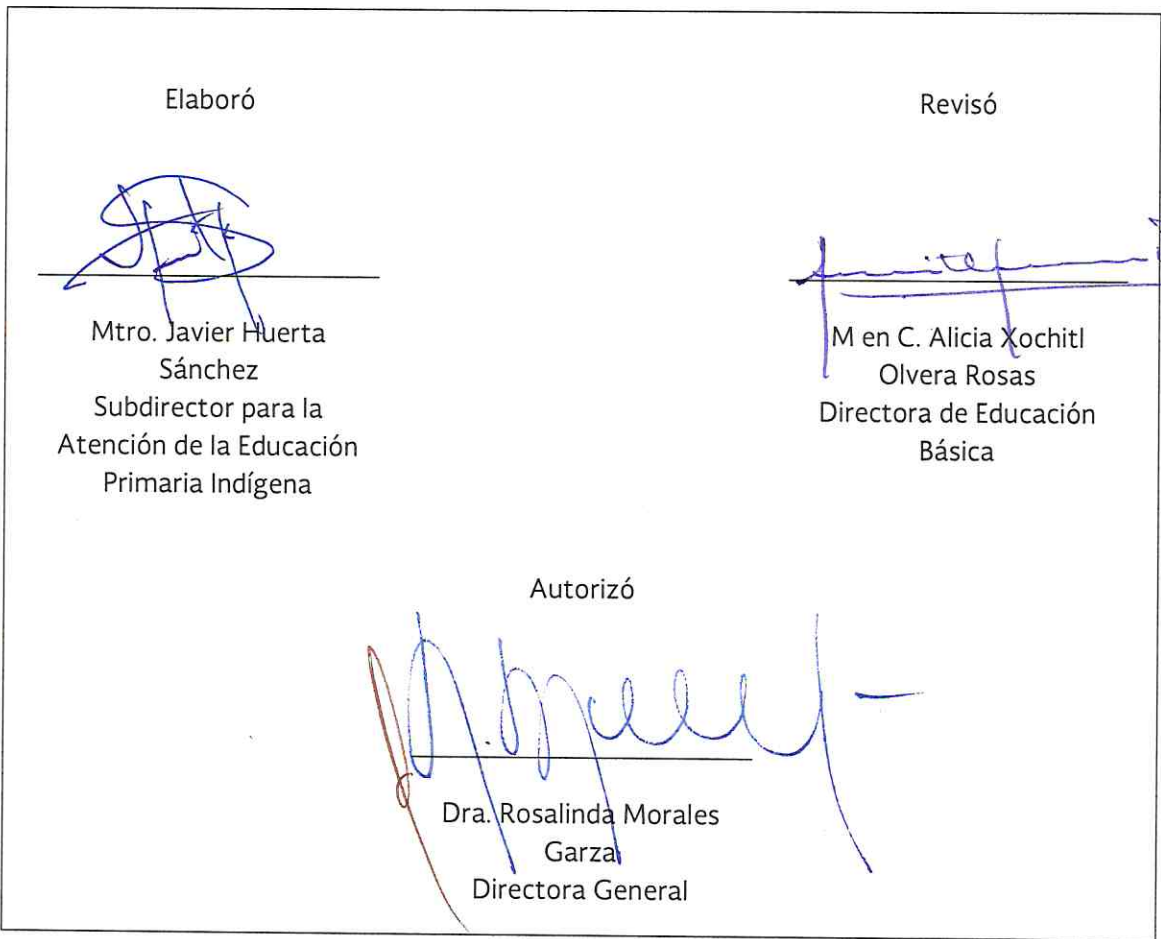 Elaboró
Mtro. Javier Huerta
Sánchez
Subdirector para la
Atención de la Educación
Primaria Indígena
Revisó
M en C. Alicia Xochitl
Olvera Rosas
Directora de Educación
Básica
Autorizó
Dra. Rosalinda Morales
Garza
Directora General